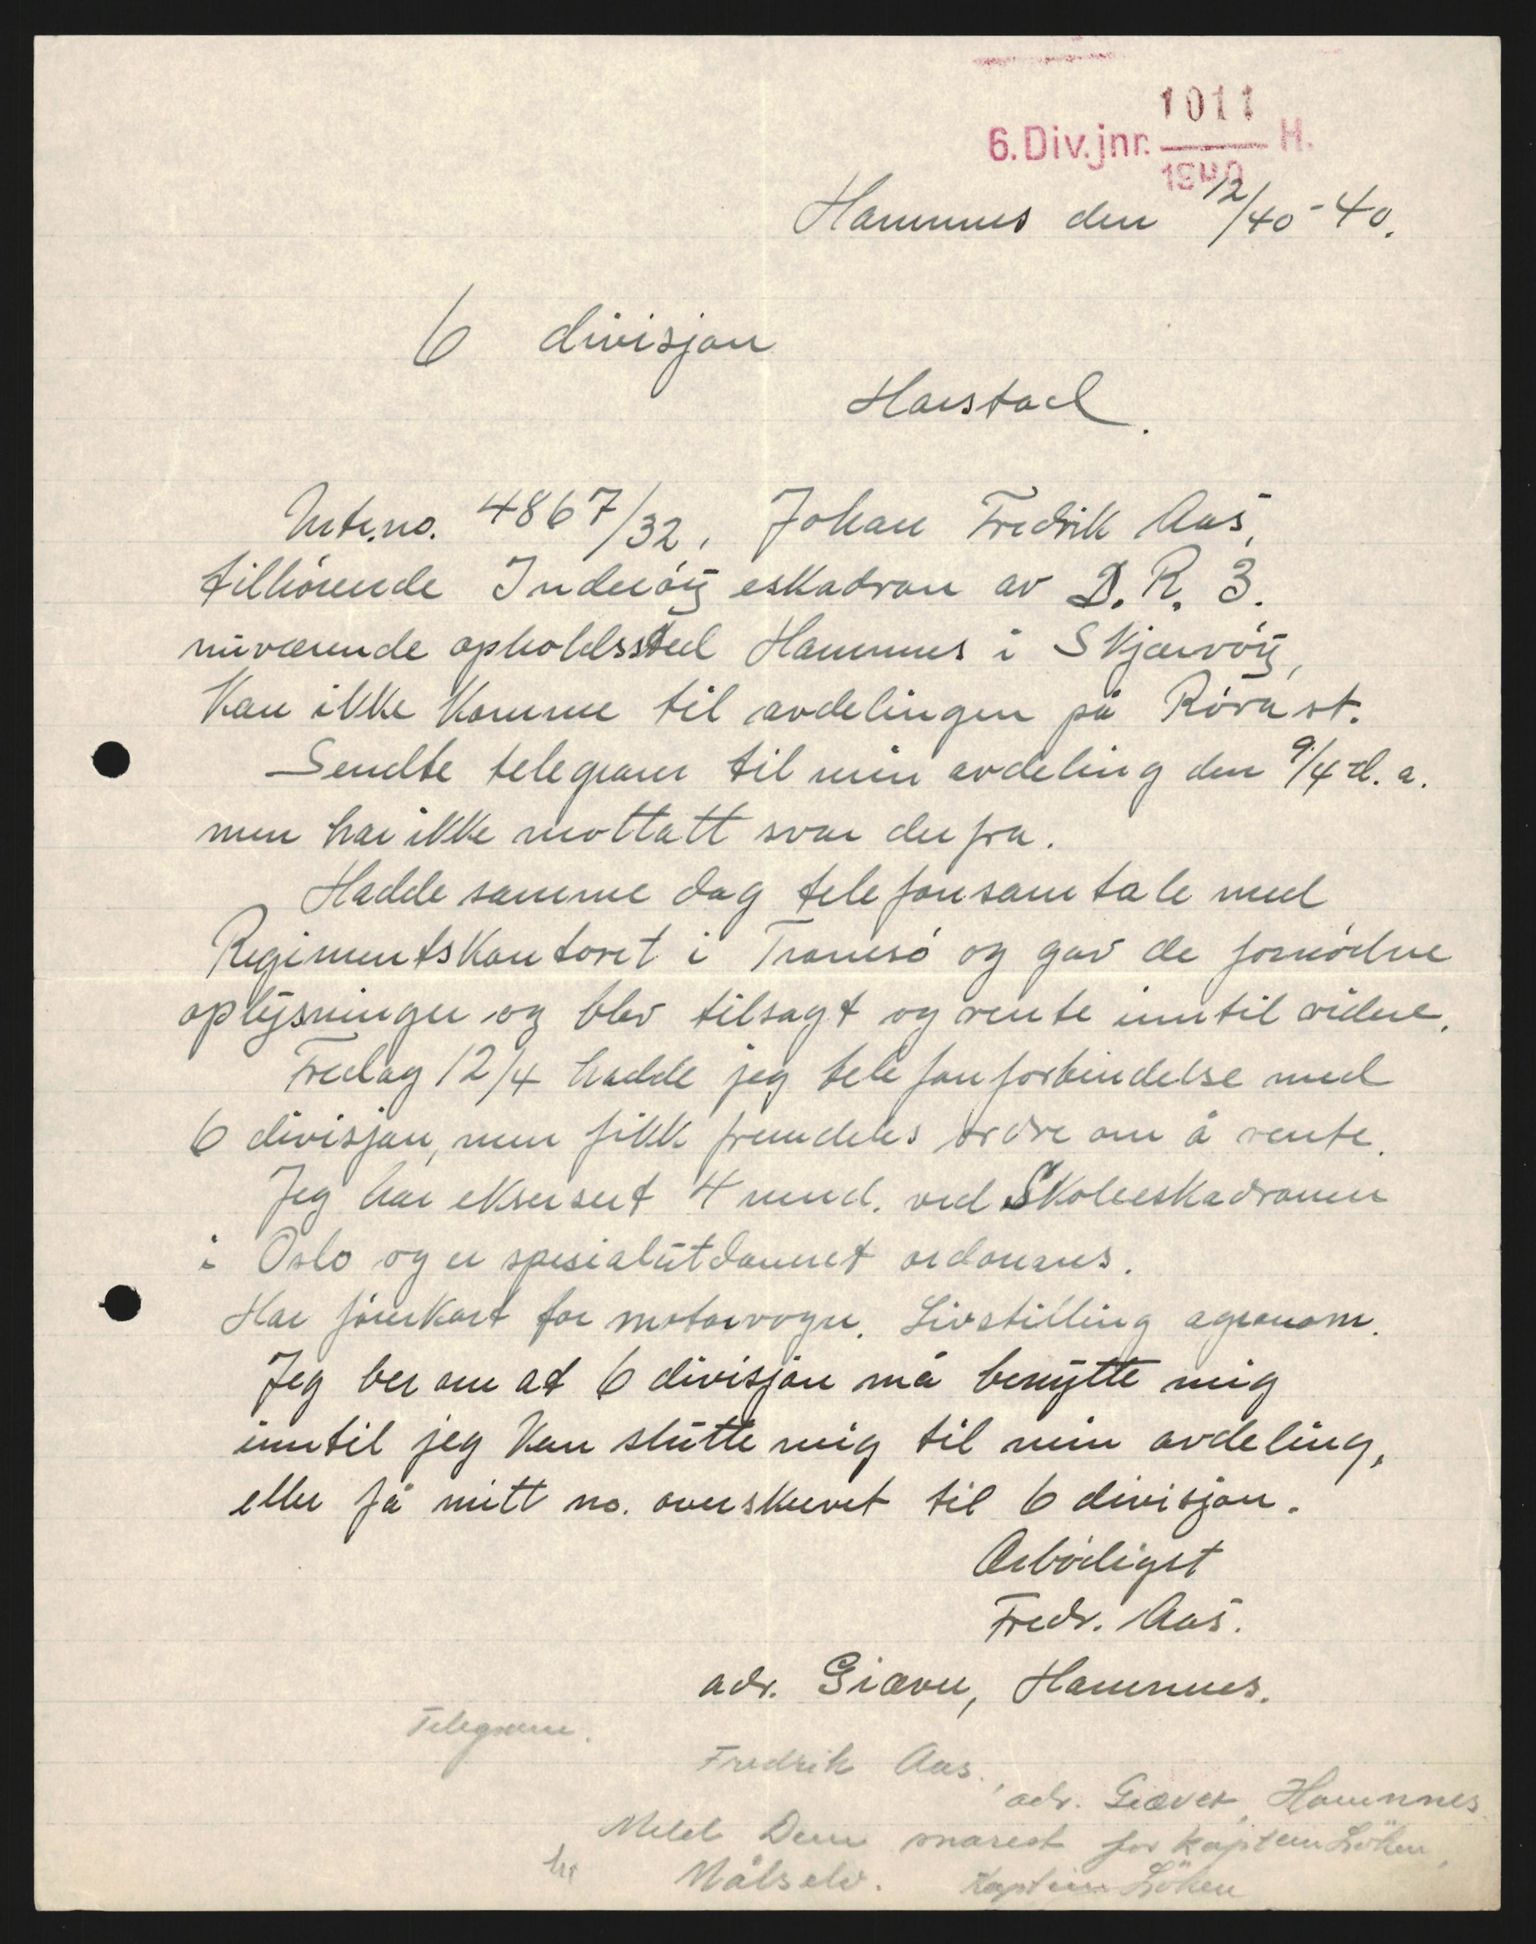 1011
6. Div. jnr. H.
1940
Hamnnes den 12/40-40.
6 divisjon
Harstad.
Mtr.no. 4867/32, Johan Fredrik Aas,
tilhørende Inderøy eskadron av D. R. 3.
nuværende opholdssted Hamnnes i Skjærvøy,
kan ikke komme til avdelingen på Røra st.
Sendte telegram til min avdeling den 9/4 d. a.
men har ikke mottatt svar derfra.
Hadde samme dag telefonsamtale med
Regimentskontoret i Tromsø og gav de fornødne
oplysninger og blev tilsagt og vente inntil videre.
Fredag 12/4 hadde jeg telefonforbindelse med
6 divisjon, men fikk fremdeles ordre om å vente.
Jeg har eksersert 4 mnd. ved Skoleeskadronen
i Oslo og er spesialutdannet ordonans.
Har førerkort for motorvogn. Livstilling agronom.
Jeg ber om at 6 divisjon må benytte mig
inntil jeg kan slutte mig til min avdeling,
eller få mitt no. overskrevet til 6 divisjon.
Ærbødigst
Fredr. Aas.
adr. Giæver, Hamnnes.
Telegram.
Fredrik Aas.
adr. Giæver, Hamnnes
Meld Dem snarest for kaptein Löken,
Målselv. Kaptein Löken